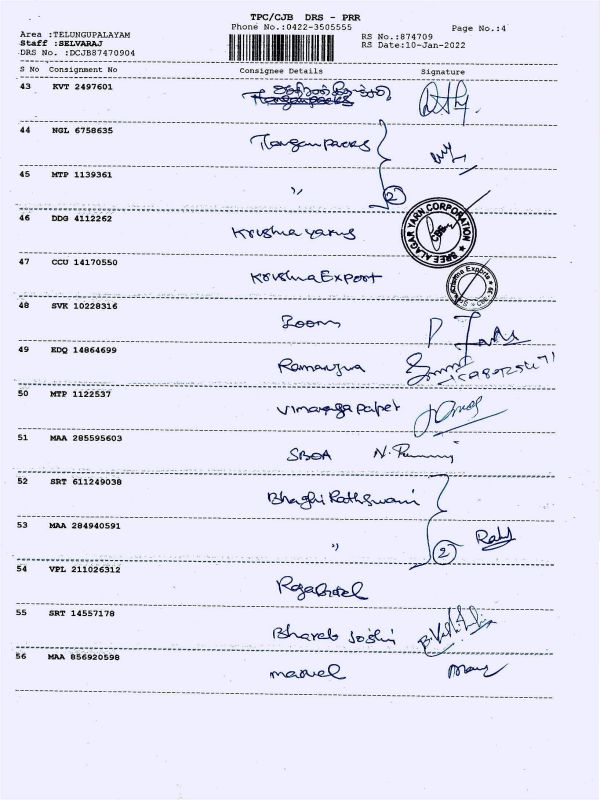 TPC/CJB DRS - PRR
Phone No.:0422-3505555 Page No.:4
Area :TELUNGUPALAYAM
Staff :SELVARAJ
DRS No. :DCJB87470904
RS No.:874709
RS Date:10-Jan-2022
S No Consignment No Consignee Details Signature
43 KVT 2497601
44 NGL 6758635
45 MTP 1139361
" 2
46 DDG 4112262
Krishna yarns
SREE ALAGAR YARN CORPORATION CBE
47 CCU 14170550
Krishna Export
48 SVK 10228316
Zoom
49 EDQ 14864699
50 MTP 1122537
Vinayaga Paper
51 MAA 285595603
SBOA
52 SRT 611249038
53 MAA 284940591
" 2
54 VPL 211026312
55 SRT 14557178
Bharab Joshi
56 MAA 856920598
marvel